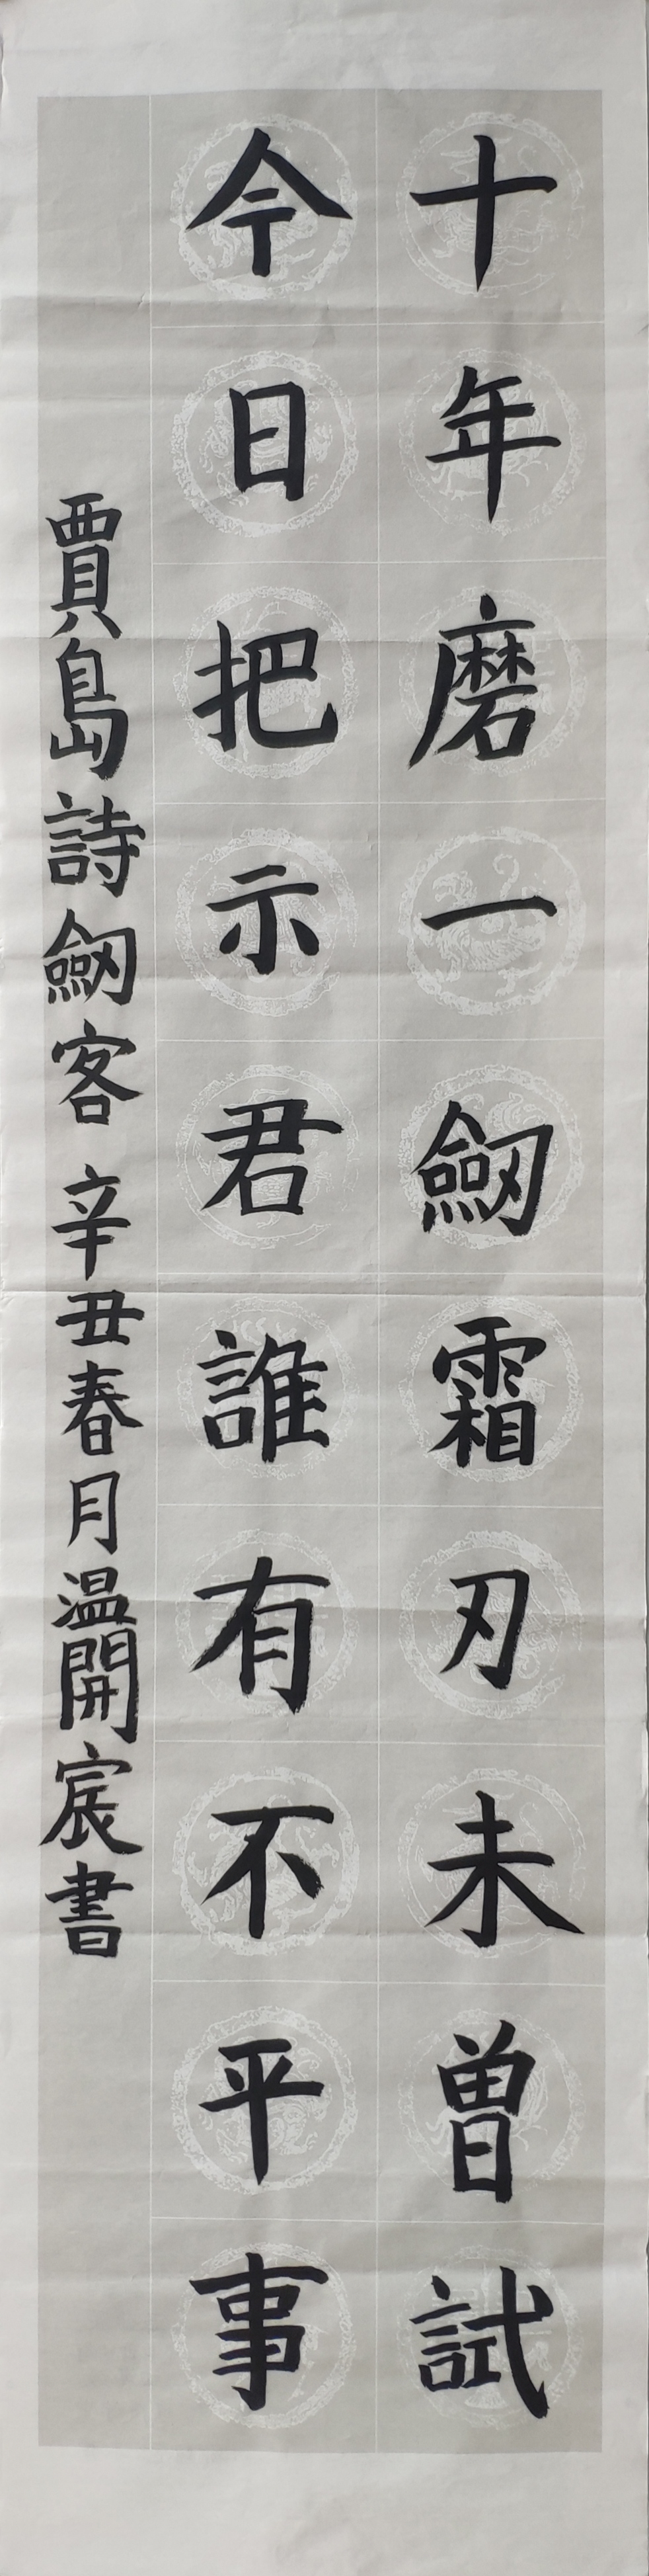 十年磨一劒霜刃未曽試
今日把示君誰有不平事
賈島詩劒客辛丑春月温開宸書